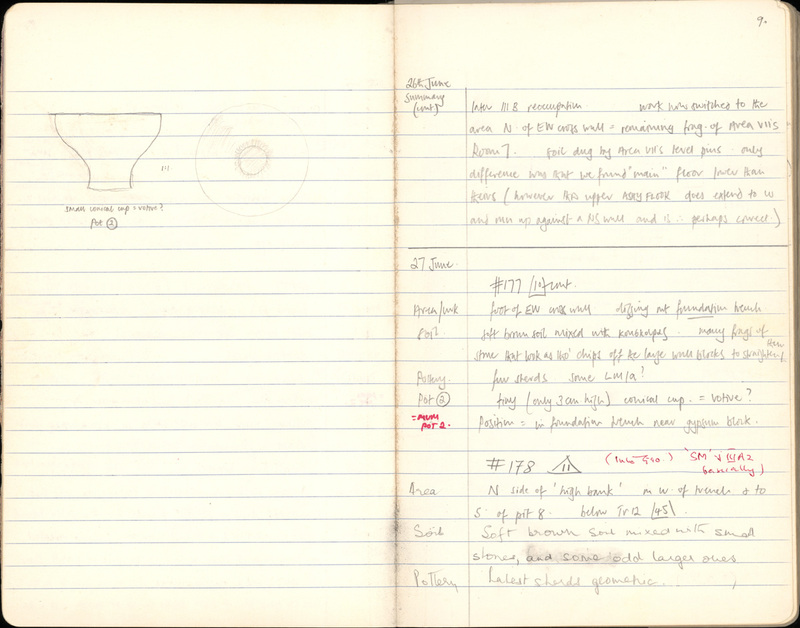 small conical cup = votive?
Pot ②
1:1
9.
26th June
Summary
(cont)
later III B reoccupation work now switches to the
area N of EW cross wall = remaining frag. of Area VII's
Room 7. soil dug by Area VII's level pins. only
difference was that we found "main" floor lower than
theirs (however this upper ASHY FLOOR does extend to W
and run up against a NS wall and is ∴ perhaps correct.)
27 June.
#177 /10\ cont.
Area/unit foot of EW cross wall digging out foundation trench
Soil. soft brown soil mixed with kouskoupes. many frags of
stone that look as tho' chips off the large wall blocks to straighten them
Pottery. few sherds some LM IA?
Pot ② tiny (only 3 cm high) conical cup. = votive?
= MUM
POT 2.
Position = in foundation trench near gypsum block.
#178 /11\ (into Geo) 'SM' & III A2
basically)
Area N side of 'high bank' on W. of trench & to
S. of pit 8. below Tr 12 /45\.
Soil Soft brown soil mixed with small
stones, and some odd larger ones
Pottery Latest sherds geometric..